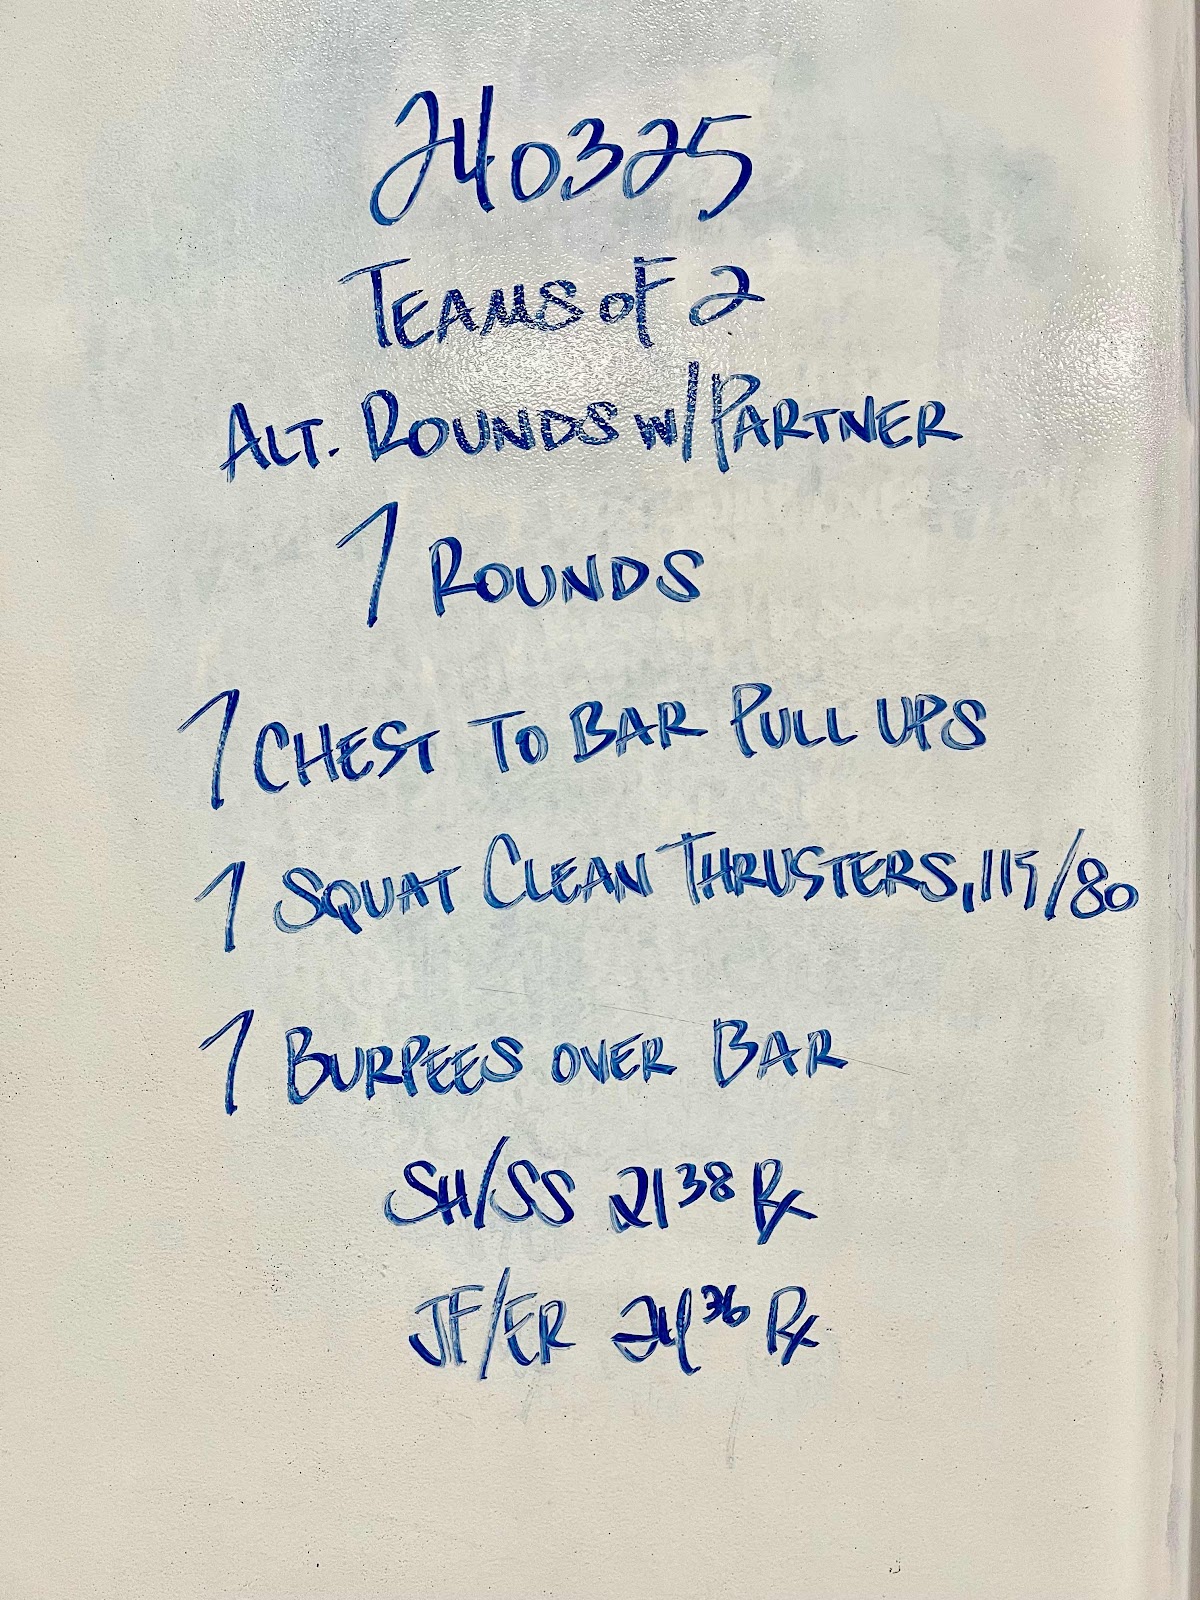 240325
TEAMS OF 2
ALT. ROUNDS W/PARTNER
7 ROUNDS
7 CHEST TO BAR PULL UPS
7 SQUAT CLEAN THRUSTERS, 115/80
7 BURPEES OVER BAR
SH/SS 21³⁸ Rx
JF/ER 24³⁶ Rx